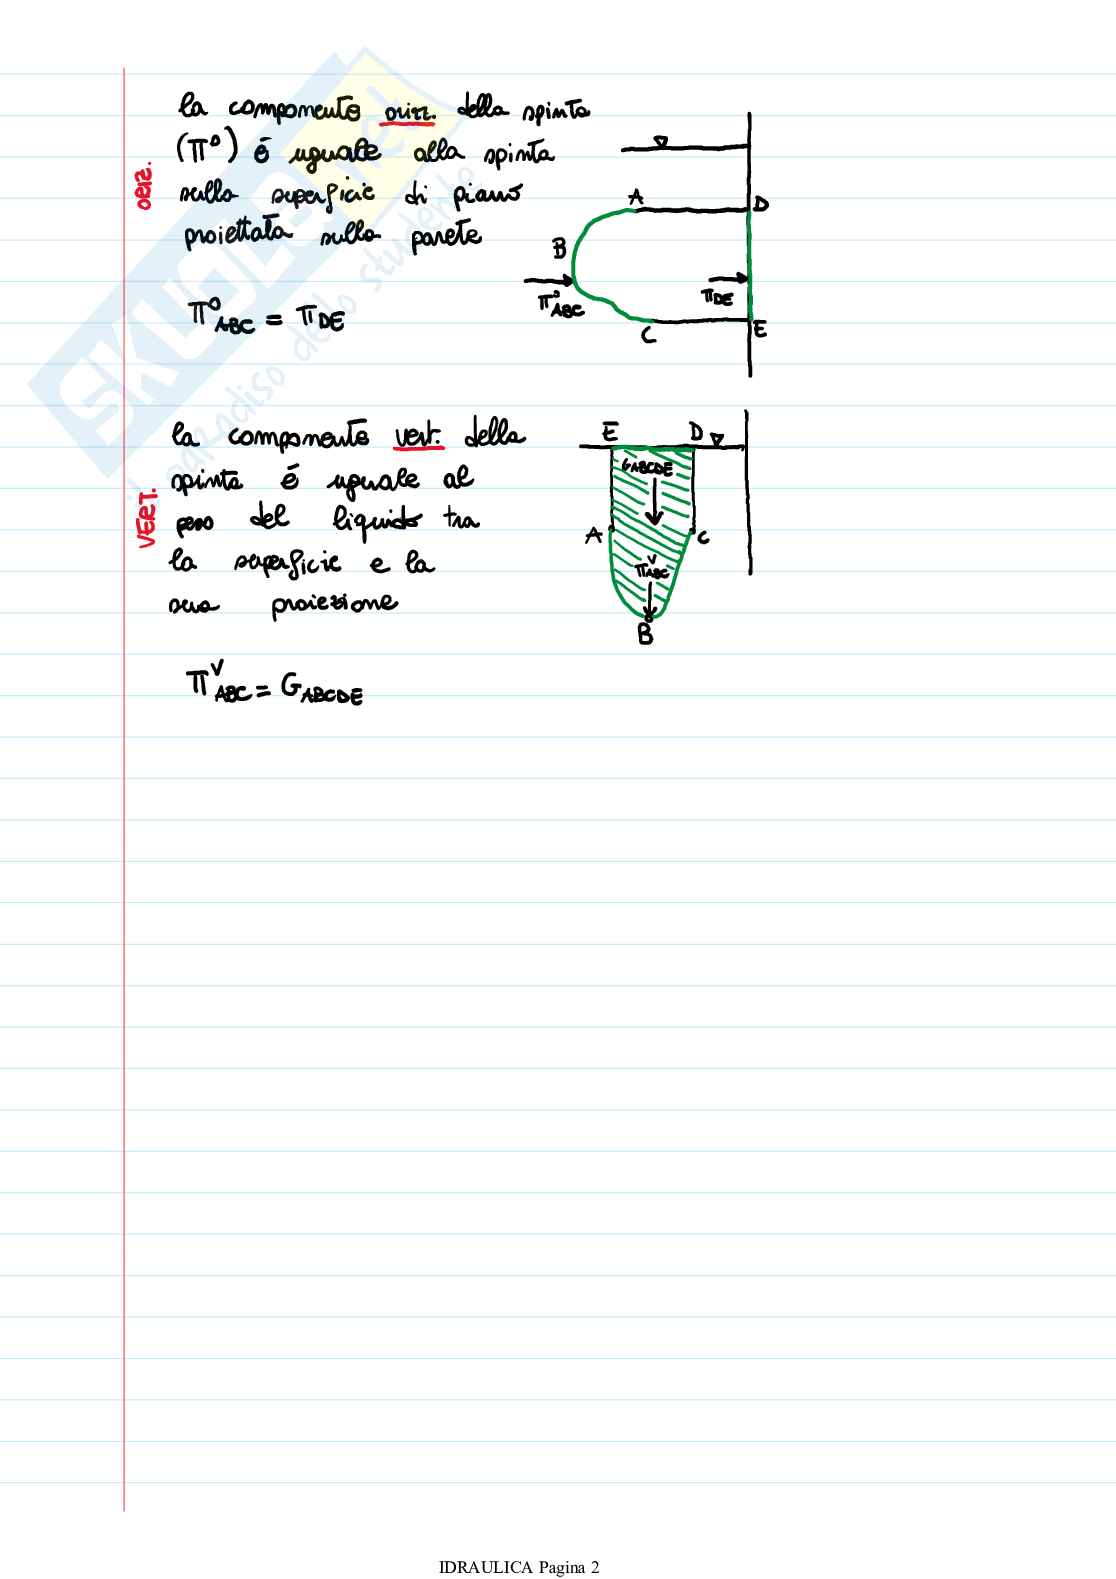 la componente orizz. della spinta
(π°) é uguale alla spinta
sulla superficie di piano
proiettata sulla parete
ORIZ.
π°ABC = πDE
A
D
B
π°ABC
πDE
C
E
la componente vert. della
spinta é uguale al
peso del liquido tra
la superficie e la
sua proiezione
VERT.
πᵛABC = GABCDE
E
D
GABCDE
A
C
πᵛABC
B
SKUOLA.net
il paradiso dello studente
IDRAULICA Pagina 2